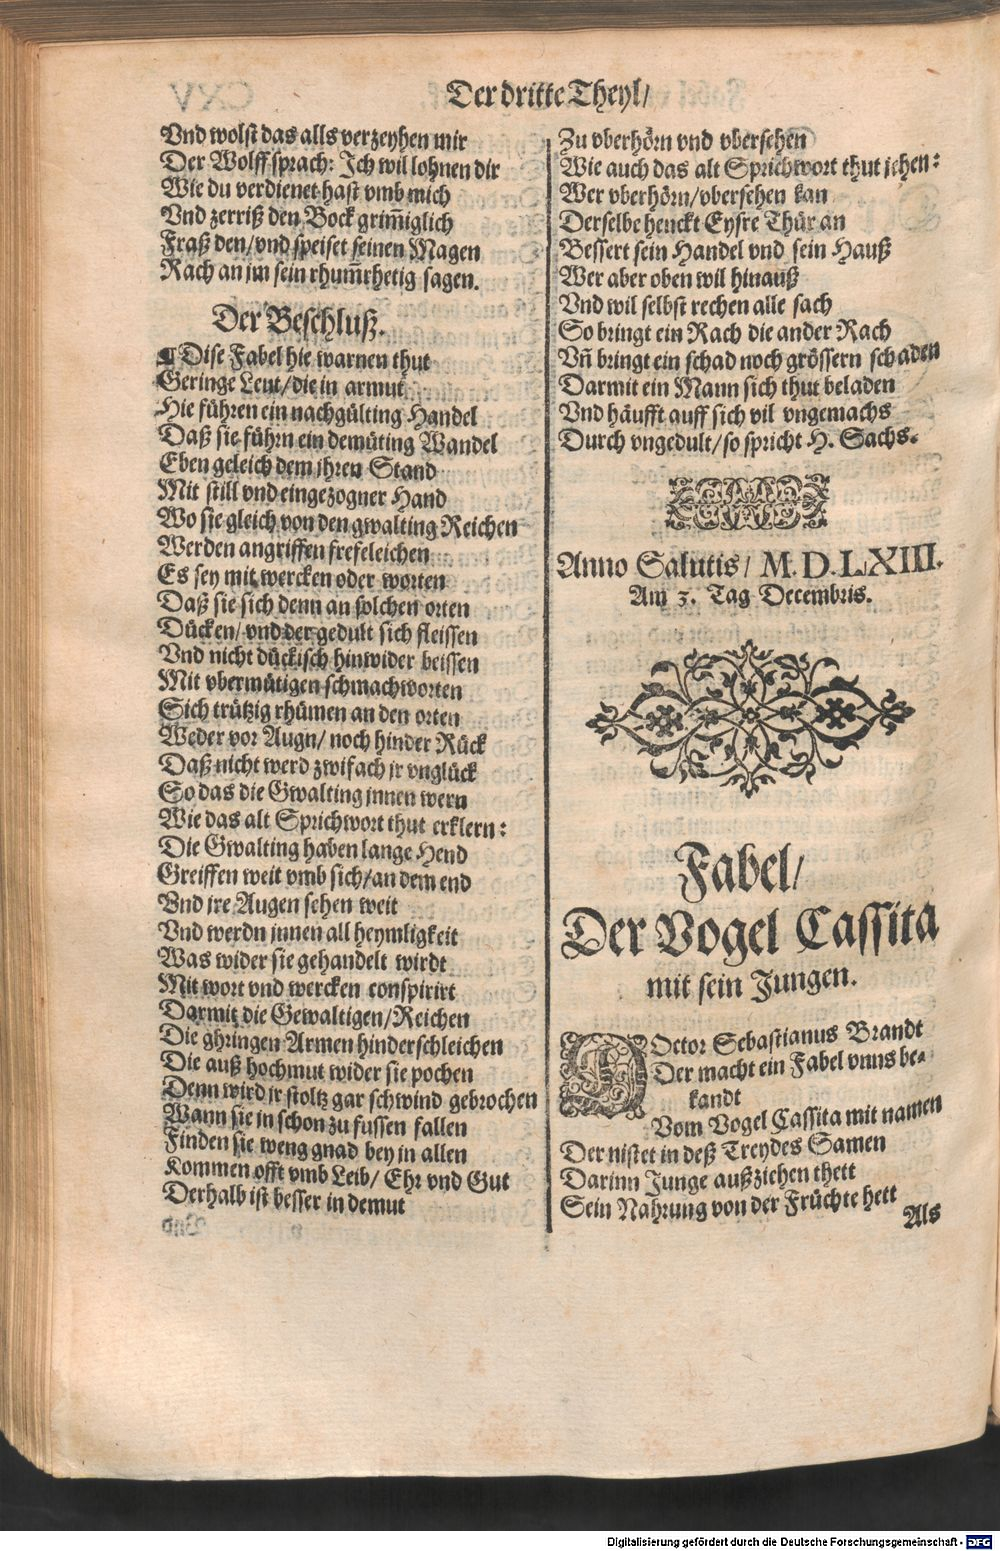 Der dritte Theyl/
Vnd wolst das alls verzeyhen mir
Der Wolff sprach: Ich wil lohnen dir
Wie du verdienet hast vmb mich
Vnd zerriß den Bock grim̃iglich
Fraß den/vnd speiset seinen Magen
Rach an jm sein rhum̃rhetig sagen.
Der Beschluß.
¶ Dise Fabel hie warnen thut
Geringe Leut/die in armut
Hie führen ein nachgülting Handel
Daß sie führn ein demüting Wandel
Eben geleich dem jhren Stand
Mit still vnd eingezogner Hand
Wo sie gleich von den gwalting Reichen
Werden angriffen frefeleichen
Es sey mit wercken oder worten
Daß sie sich denn an solchen orten
Dücken/vnd der gedult sich fleissen
Vnd nicht dückisch hinwider beissen
Mit vbermütigen schmachworten
Sich trützig rhümen an den orten
Weder vor Augn/noch hinder Rück
Daß nicht werd zwifach jr vnglück
So das die Gwalting jnnen wern
Wie das alt Sprichwort thut erklern:
Die Gwalting haben lange Hend
Greiffen weit vmb sich/an dem end
Vnd jre Augen sehen weit
Vnd werdn jnnen all heymligkeit
Was wider sie gehandelt wirdt
Mit wort vnd wercken conspirirt
Darmit die Gewaltigen/Reichen
Die ghringen Armen hinderschleichen
Die auß hochmut wider sie pochen
Denn wird jr stoltz gar schwind gebrochen
Wann sie jn schon zu fussen fallen
Finden sie weng gnad bey jn allen
Kommen offt vmb Leib/ Ehr vnd Gut
Derhalb ist besser in demut
Zu vberhörn vnd vbersehen
Wie auch das alt Sprichwort thut jehen:
Wer vberhörn/vbersehen kan
Derselbe henckt Eysre Thür an
Bessert sein Handel vnd sein Hauß
Wer aber oben wil hinauß
Vnd wil selbst rechen alle sach
So bringt ein Rach die ander Rach
Vñ bringt ein schad noch grössern schaden
Darmit ein Mann sich thut beladen
Vnd häufft auff sich vil vngemachs
Durch vngedult/so spricht H. Sachs.
Anno Salutis/ M. D. LXIII.
Am 3. Tag Decembris.
Fabel/
Der Vogel Cassita
mit sein Jungen.
DOctor Sebastianus Brandt
Der macht ein Fabel vnns be-
kandt
Vom Vogel Cassita mit namen
Der nistet in deß Treydes Samen
Darinn Junge außziehen thett
Sein Nahrung von der Früchte hett
Als
Digitalisierung gefördert durch die Deutsche Forschungsgemeinschaft - DFG